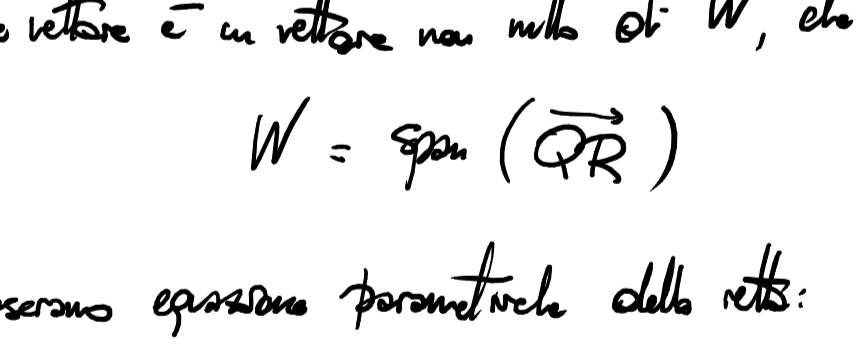 vettore è un vettore non nullo di W, che
W = span (\overrightarrow{QR})
equazione parametriche della retta: